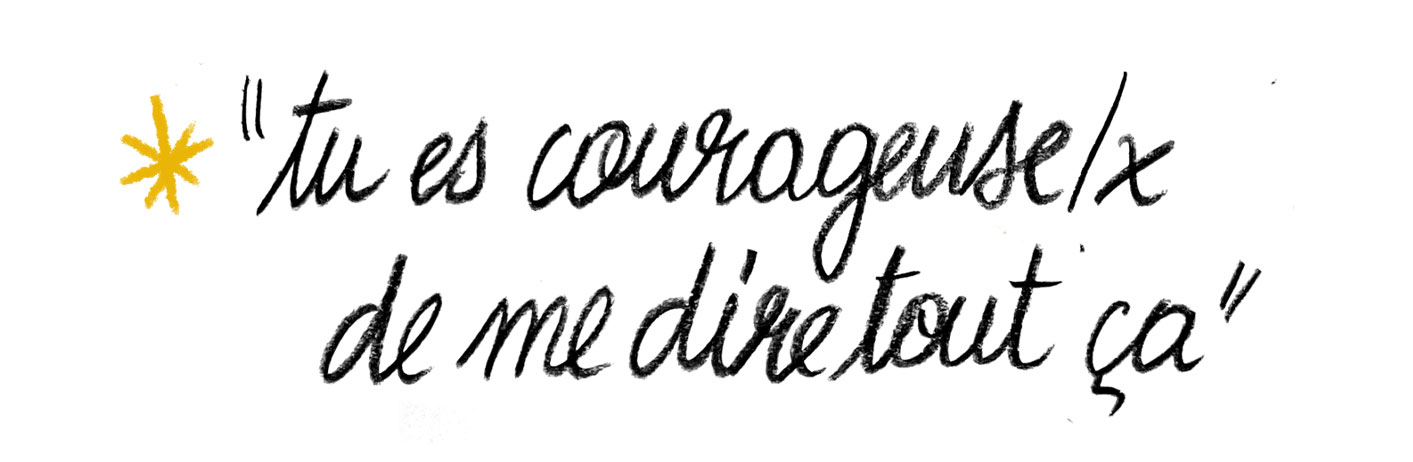 "tu es courageuse/x
de me dire tout ça"